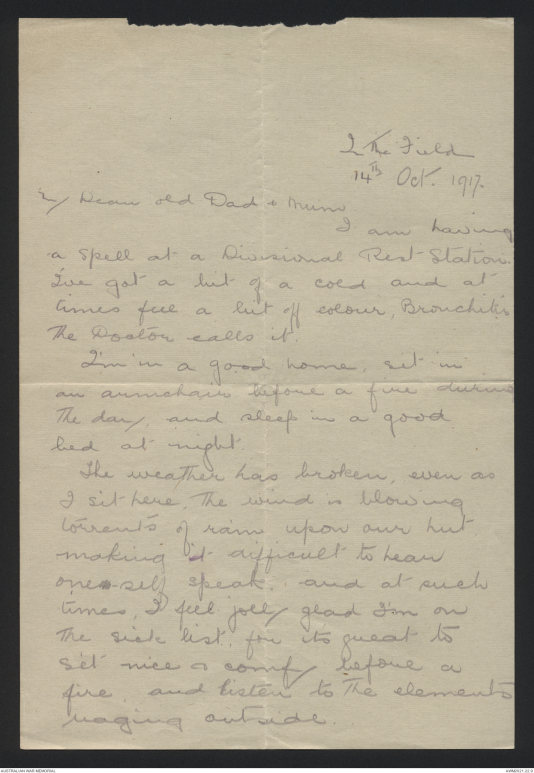 In The Field
14th Oct. 1917.
My Dear old Dad & Mum
I am having
a spell at a Divisional Rest Station.
I've got a bit of a cold and at
times feel a bit off colour, Bronchitis
the Doctor calls it.
I'm in a good home, set in
an armchair before a fire during
the day, and sleep in a good
bed at night.
The weather has broken, even as
I sit here, the wind is blowing
torrents of rain upon our hut
making it difficult to hear
one-self speak, and at such
times, I feel jolly glad I'm on
the sick list, for its great to
set nice & comfy before a
fire and listen to the elements
raging outside.
AUSTRALIAN WAR MEMORIAL